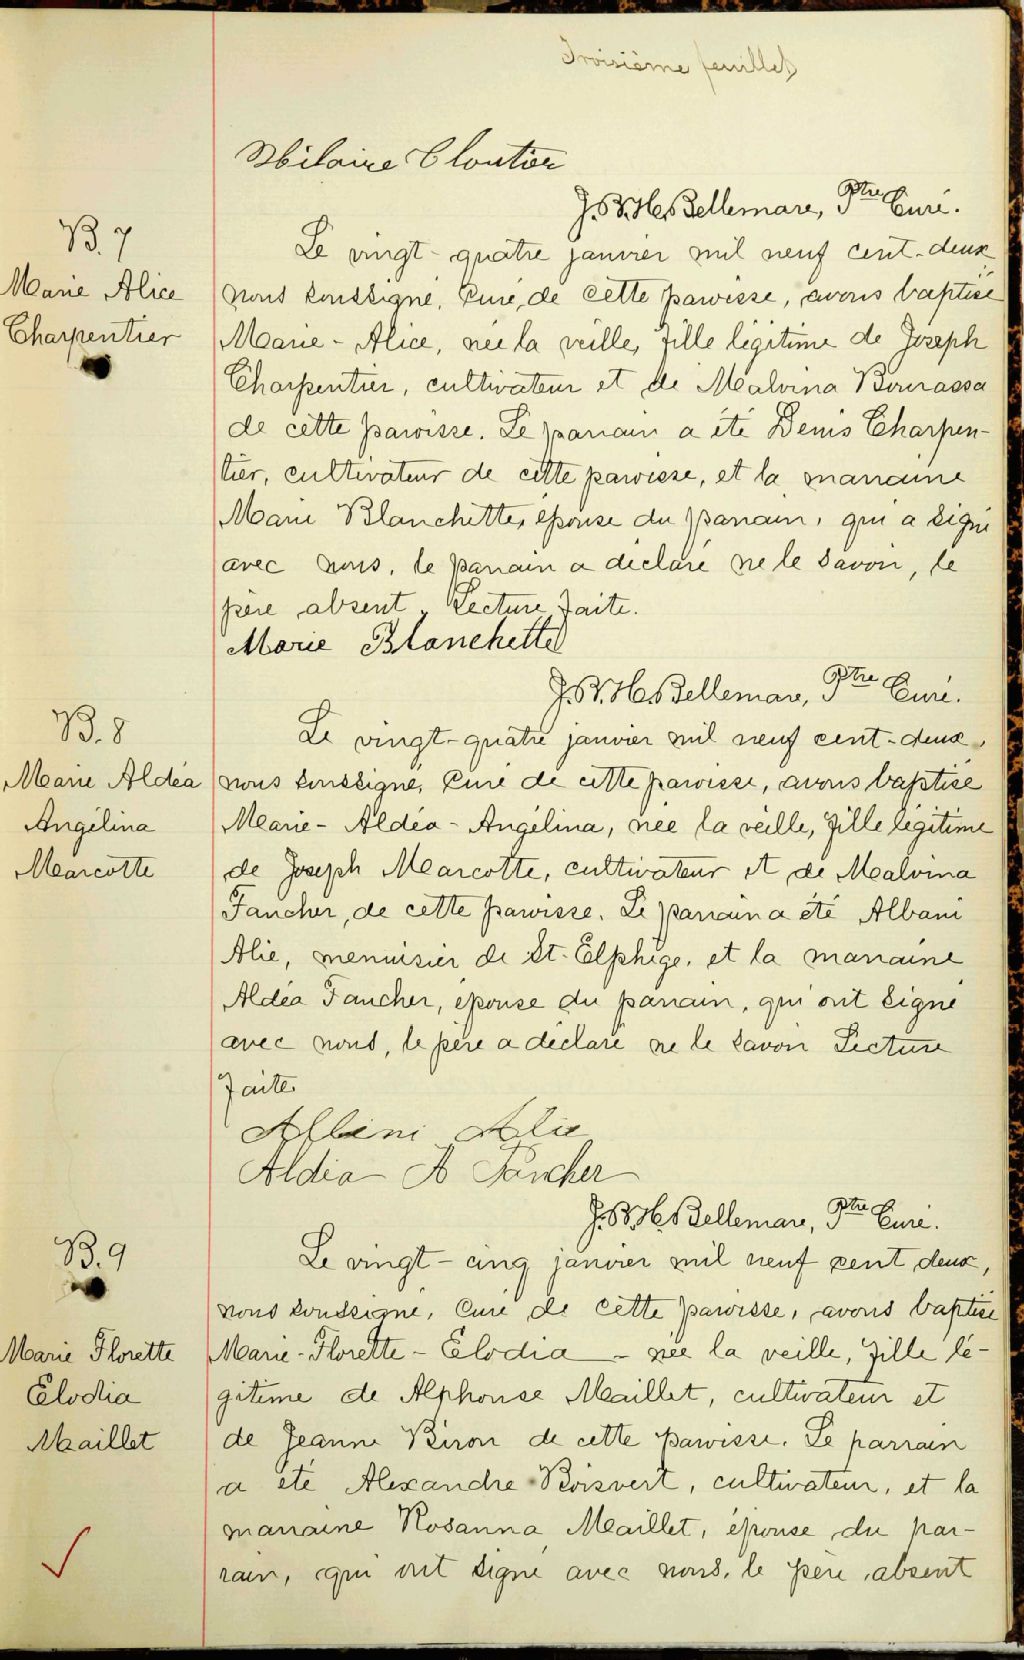 Troisième feuillet
Hilaire Cloutier
J.B.H. Bellemare, Ptre Curé.
B. 7
Marie Alice
Charpentier
Le vingt-quatre janvier mil neuf cent-deux
nous soussigné, Curé de cette paroisse, avons baptisé
Marie-Alice, née la veille, fille légitime de Joseph
Charpentier, cultivateur et de Malvina Bourassa
de cette paroisse. Le parrain a été Denis Charpen-
tier, cultivateur de cette paroisse, et la marraine
Marie Blanchette, épouse du parrain, qui a signé
avec nous, le parrain a déclaré ne le savoir, le
père absent. Lecture faite.
Marie Blanchette
J.B.H. Bellemare, Ptre Curé.
B. 8
Marie Aldéa
Angélina
Marcotte
Le vingt-quatre janvier mil neuf cent-deux,
nous soussigné, Curé de cette paroisse, avons baptisé
Marie-Aldéa-Angélina, née la veille, fille légitime
de Joseph Marcotte, cultivateur et de Malvina
Faucher, de cette paroisse. Le parrain a été Albani
Alie, menuisier de St-Elphège, et la marraine
Aldéa Faucher, épouse du parrain, qui ont signé
avec nous, le père a déclaré ne le savoir Lecture
faite.
Albeni Alie
Aldia A Faucher
J.B.H. Bellemare, Ptre Curé.
B. 9
Marie Florette
Elodia
Maillet
Le vingt-cinq janvier mil neuf cent deux,
nous soussigné, Curé de cette paroisse, avons baptisé
Marie-Florette-Elodia - née la veille, fille lé-
gitime de Alphonse Maillet, cultivateur et
de Jeanne Biron de cette paroisse. Le parrain
a été Alexandre Boisvert, cultivateur, et la
marraine Rosanna Maillet, épouse du par-
rain, qui ont signé avec nous, le père absent